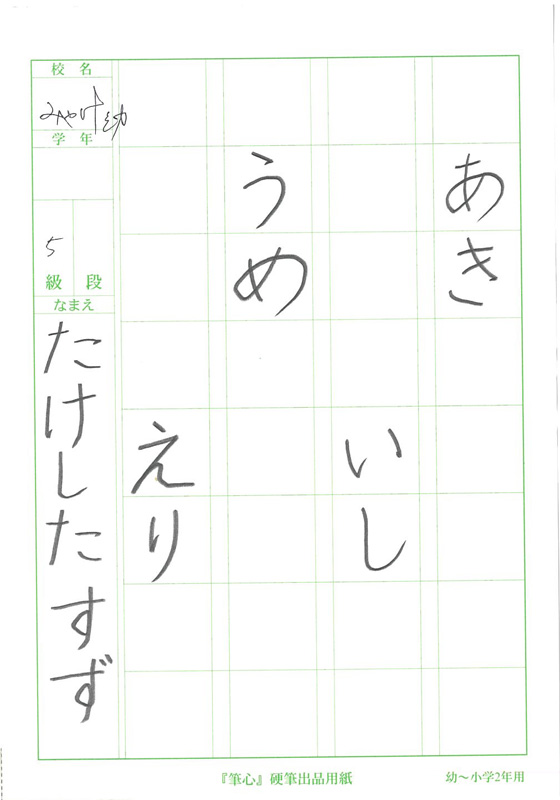 あき
いし
うめ
えり
校名
みやけ幼
学年
5
級 段
なまえ
たけしたすず
『筆心』硬筆出品用紙
幼〜小学2年用